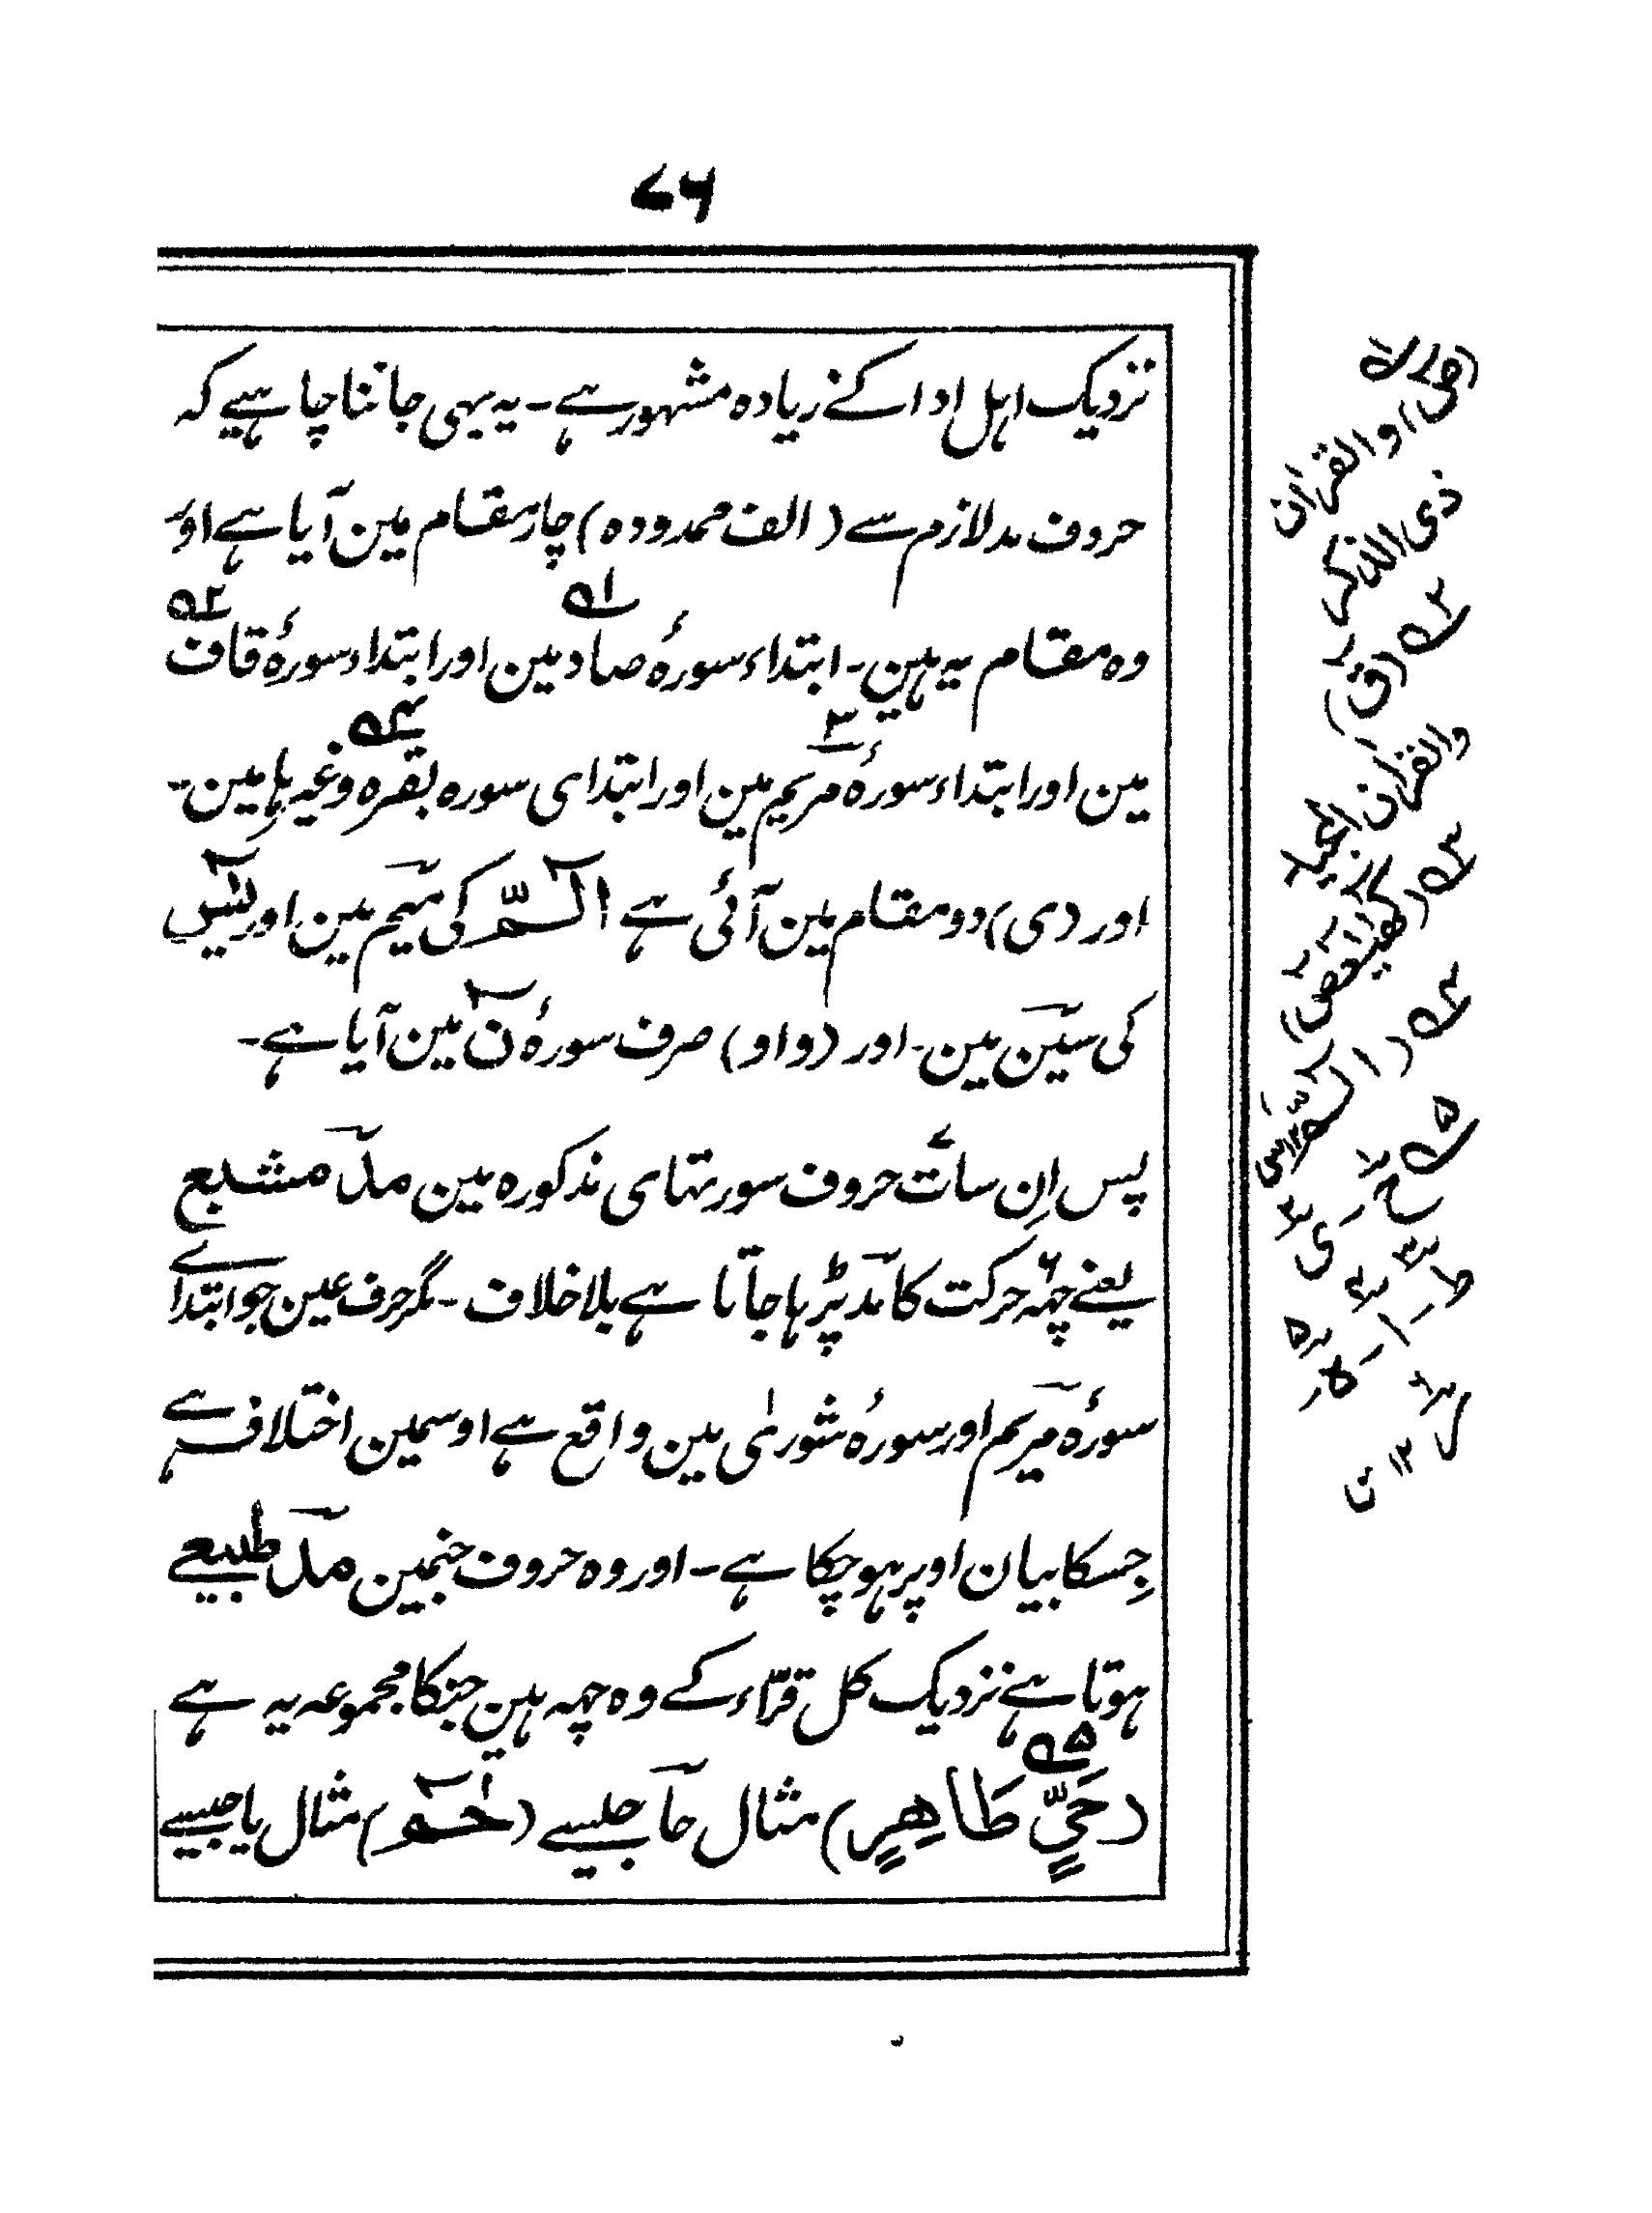 ۷۶
نزدیک اہل ادا کے زیادہ مشہور ہے۔ یہ بہی جاننا چاہیے کہ
حروف مد لازم سے (الف ممدودہ) چار مقام مین آیا ہے اور
وہ مقام یہ ہین۔ ابتداء سورۂ صاد مین اور ابتداء سورۂ قاف
مین اور ابتداء سورۂ مریم مین اور ابتدای سورہ بقرہ وغیرہا مین۔
اور (ی) دو مقام مین آئی ہے الٓمّٓ کی میٓم مین اور یٰسٓ
کی سیٓن مین۔ اور (واو) صرف سورۂ نٓ مین آیا ہے۔
پس اِن سات حروف سورتہای مذکورہ مین مدّ مشبع
یعنے چہہ حرکت کا مدّ پڑہا جاتا ہے بلا خلاف۔ مگر حرف عین جو ابتداے
سورۂ مریم اور سورۂ شوریٰ مین واقع ہے اوسمین اختلاف ہے
جِسکا بیان اوپر ہو چکا ہے۔ اور وہ حروف جنمین مدّ طبیعے
ہوتا ہے نزدیک کل قرّاء کے وہ چہہ ہین جنکا مجموعہ یہ ہے
(حَیٍّ طَاهِرٍ) مثال حا جیسے (حٰمٓ) مثال یا جیسے
(صٓ) والقراٰن
ذی الذکر
۲ (قٓ)
والقراٰن المجید
۳ (کٓهٰیٰعٓصٓ)
۴ (الٓمّٓ)
۵ ح۱۔ ی۲
ط۳۔ ا۴۔ ہ۵۔ ر۶
۱۲